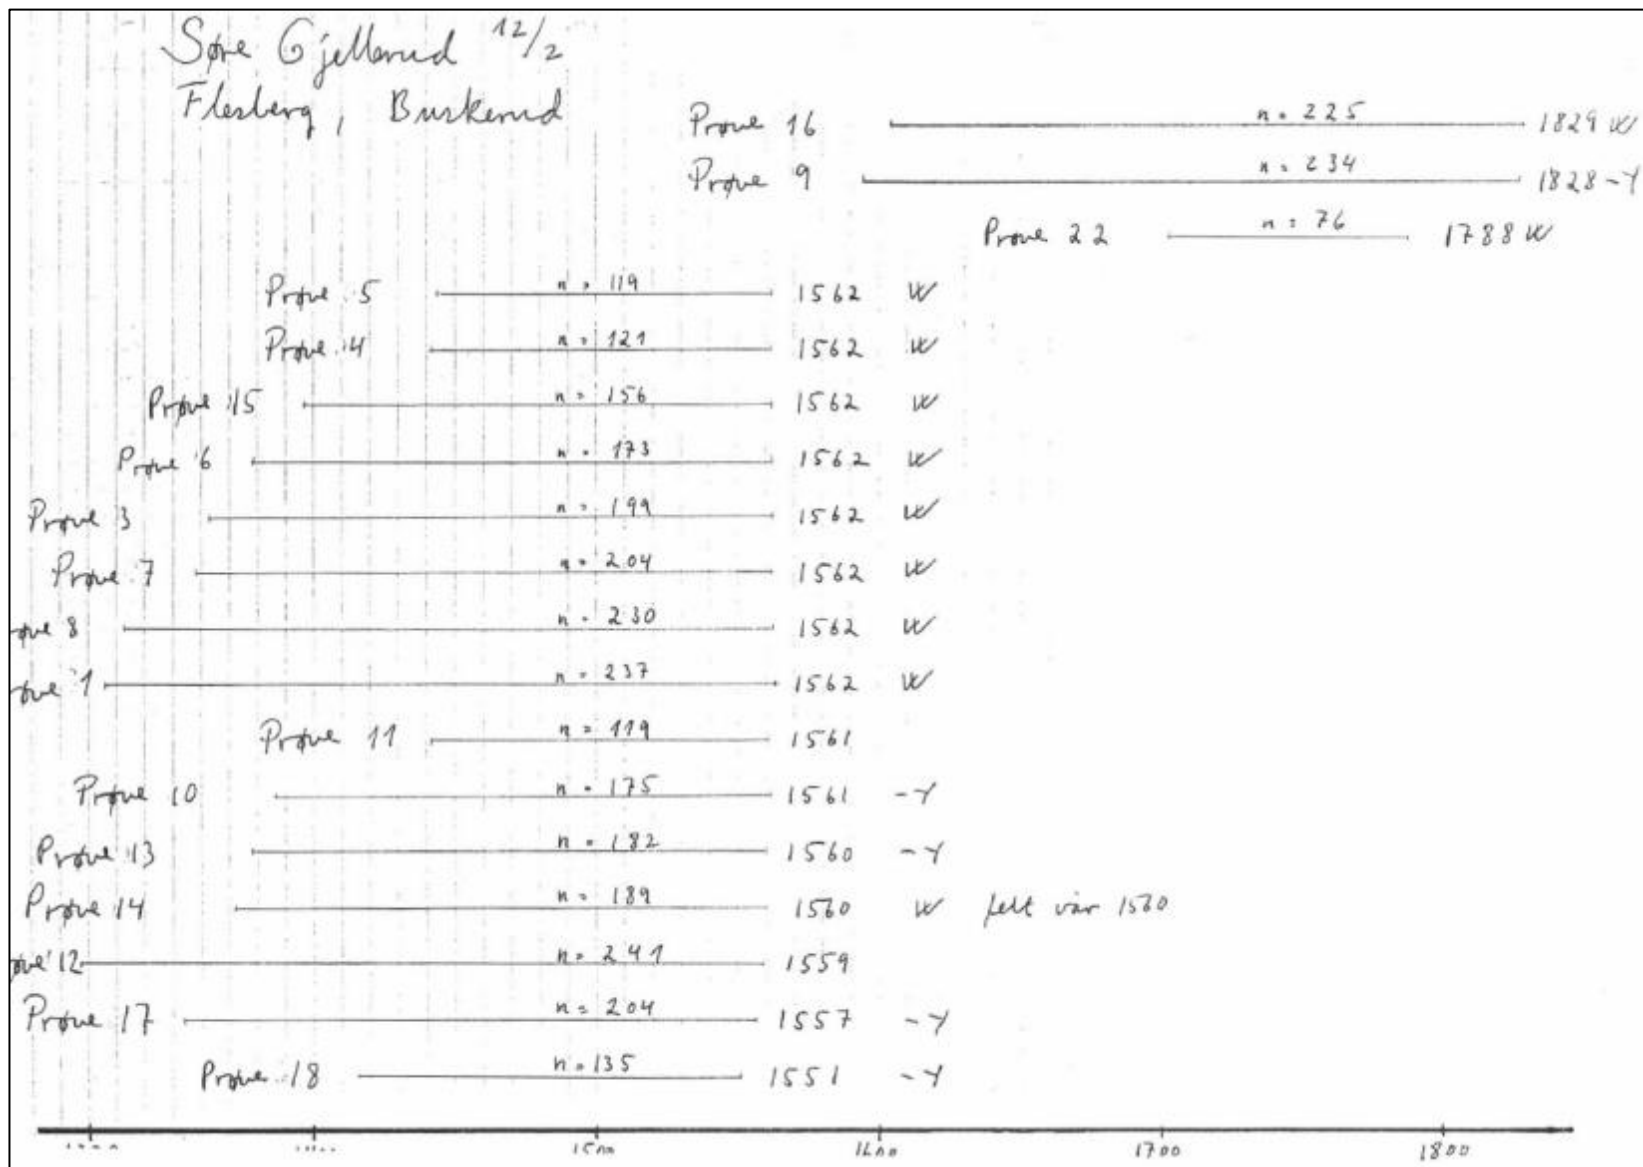 Søre Gjellerud 12/2
Flesberg, Buskerud
Prøve 16 n = 225 1829 W
Prøve 9 n = 234 1828 -Y
Prøve 22 n = 76 1788 W
Prøve 5 n = 119 1562 W
Prøve 4 n = 121 1562 W
Prøve 15 n = 156 1562 W
Prøve 6 n = 173 1562 W
Prøve 3 n = 199 1562 W
Prøve 7 n = 204 1562 W
øve 8 n = 230 1562 W
øve 1 n = 237 1562 W
Prøve 11 n = 119 1561
Prøve 10 n = 175 1561 -Y
Prøve 13 n = 182 1560 -Y
Prøve 14 n = 189 1560 W felt vår 1560
øve 12 n = 241 1559
Prøve 17 n = 204 1557 -Y
Prøve 18 n = 135 1551 -Y
1500 1600 1700 1800